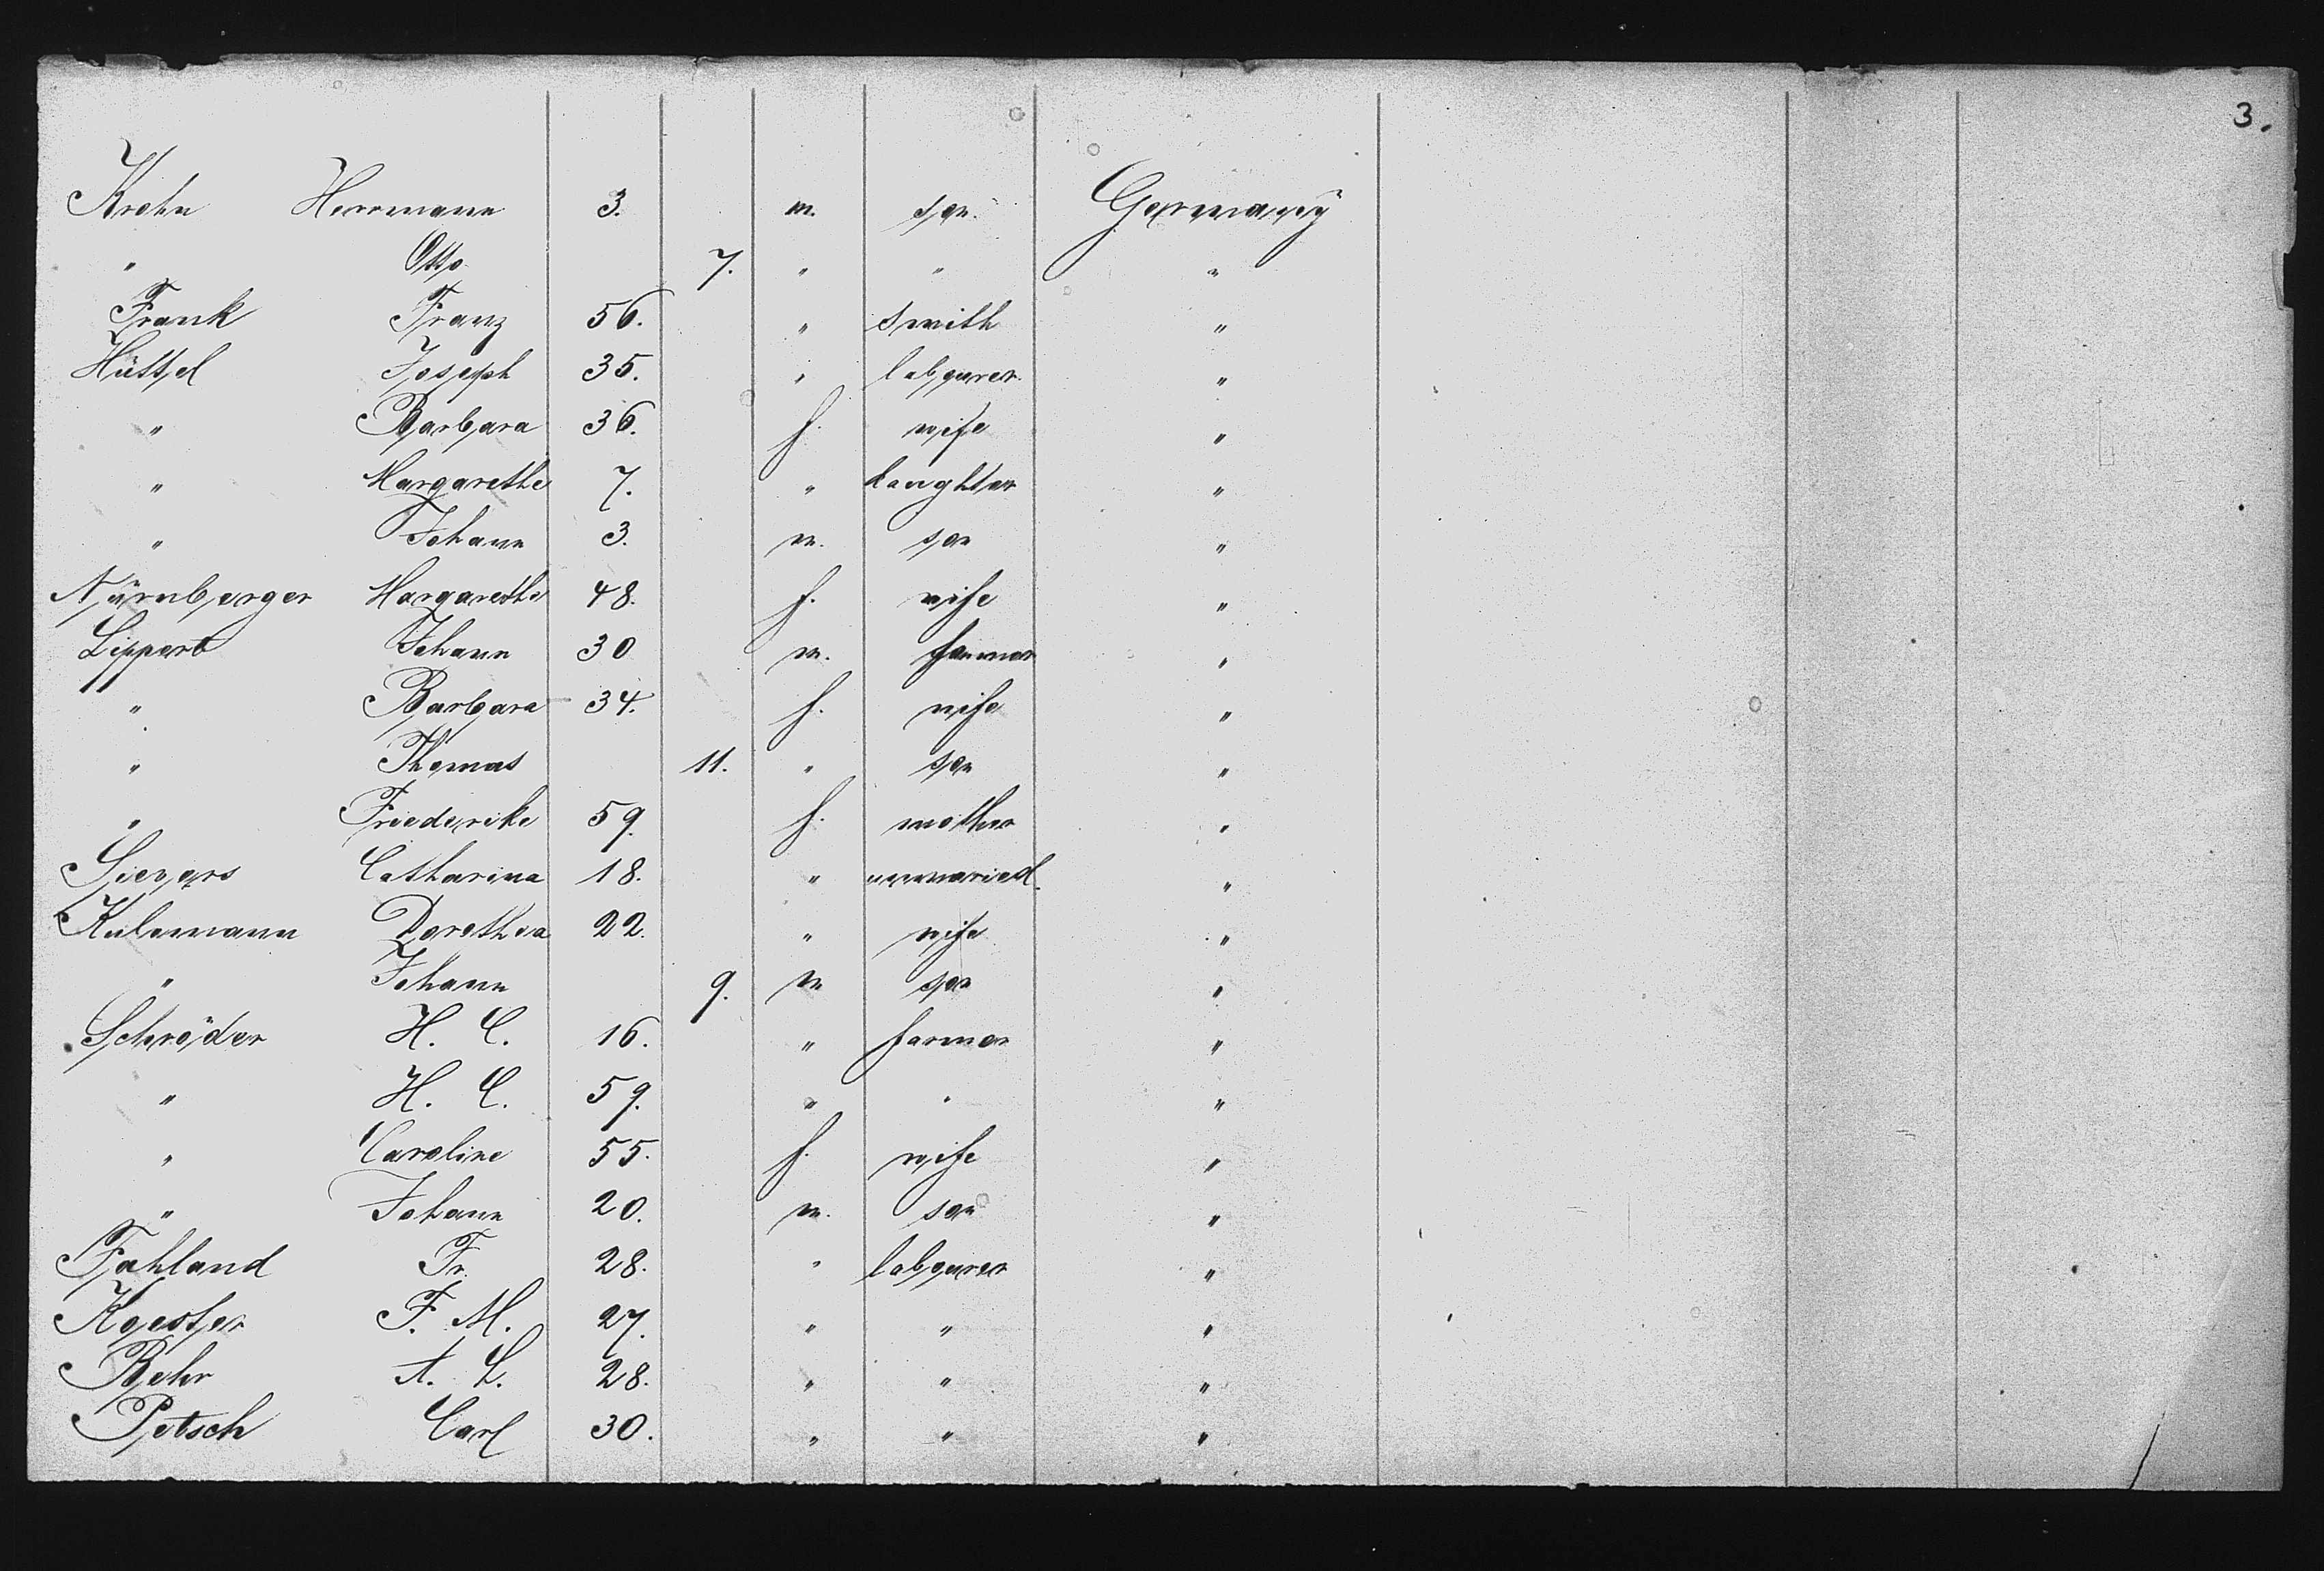 3.
Krehn Herrmann 3. m. son. Germany
" Otto 7. " " "
Frank Franz 56. " smith "
Hüttel Joseph 35. " labourer "
" Barbara 36. f. wife "
" Margarethe 7. " daughter "
" Johann 3. m. son "
Nürnberger Margarethe 48. f. wife "
Lippert Johann 30 m. farmer "
" Barbara 34. f. wife "
" Thomas 11. " son "
" Friederike 59. f. mother "
Sievers Catharina 18. " unmaried. "
Kulemann Dorothea 22. " wife "
" Johann 9. m son "
Schröder H. C. 16. " farmer "
" H. C. 59. " " "
" Caroline 55. f. wife "
" Johann 20. m. son "
Fahland Fr. 28. " labourer "
Koester F. M. 27. " " "
Behr A. C. 28. " " "
Petsch Carl 30. " " "